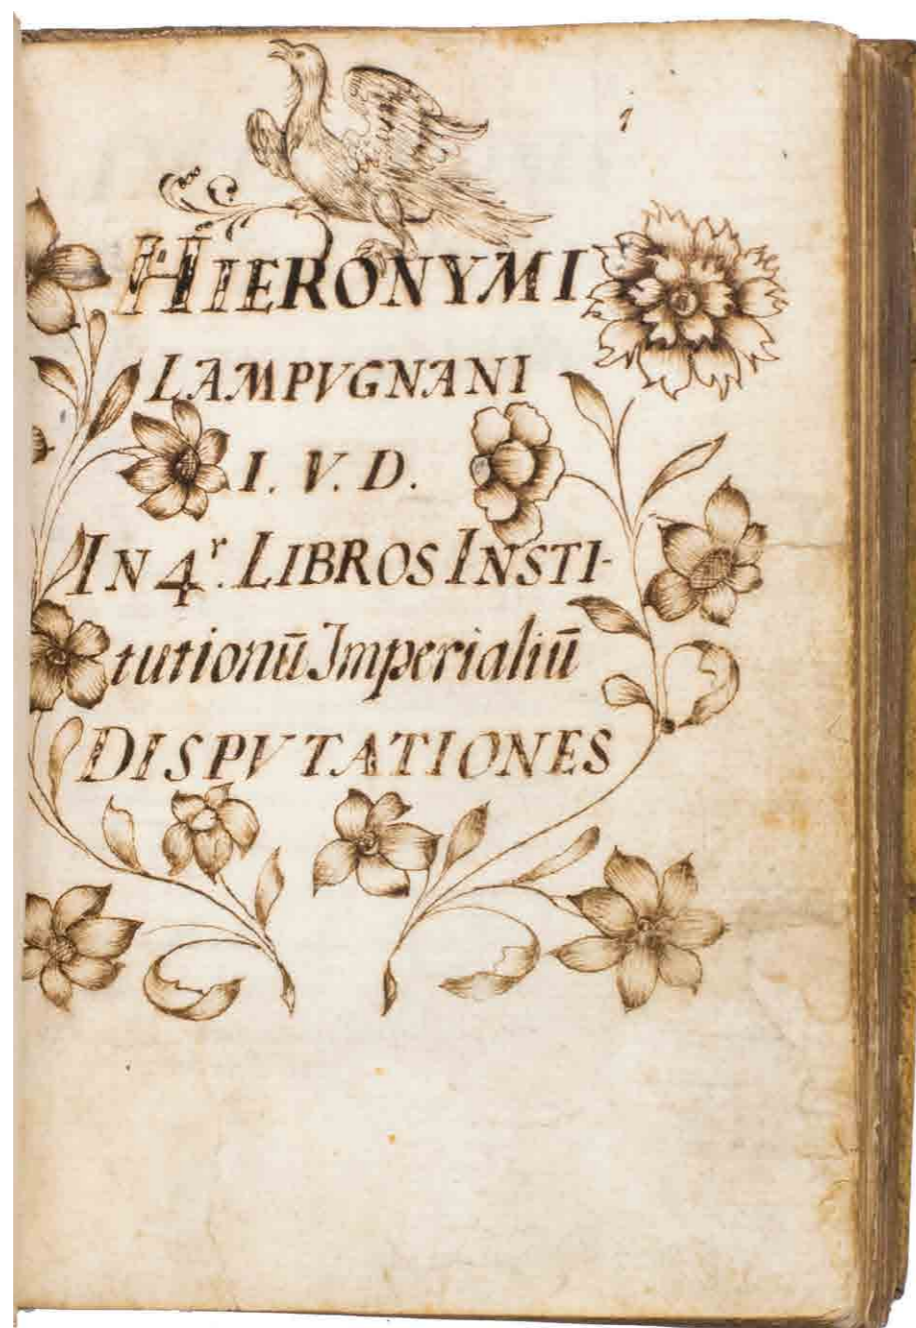 1
HIERONYMI
LAMPVGNANI
I. V. D.
IN 4r. LIBROS INSTI-
tutionū Imperialiū
DISPVTATIONES